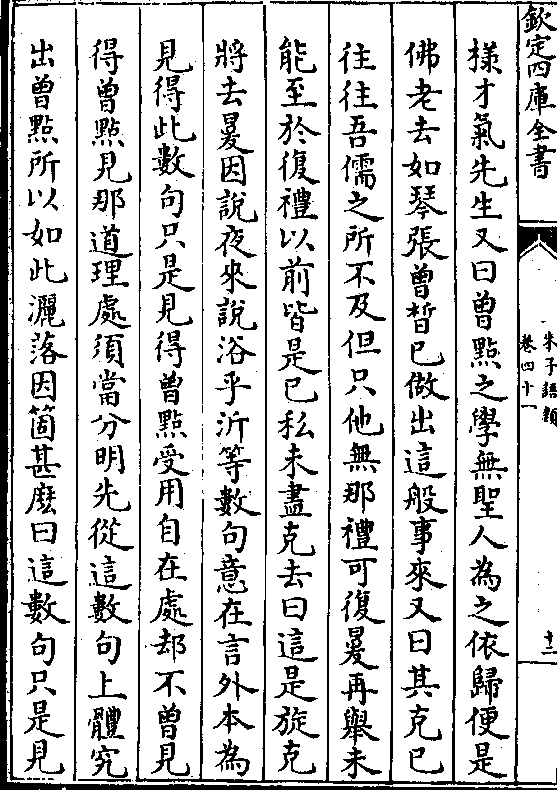 欽定四庫全書
朱子語類
卷四十一
十二
樣才氣先生又曰曾㸃之學無聖人為之依歸便是
佛老去如琴張曾晳已做出這般事來又曰其克己
往往吾儒之所不及但只他無那禮可復㬊再舉未
能至於復禮以前皆是己私未盡克去曰這是旋克
將去㬊因說夜來說浴乎沂等數句意在言外本為
見得此數句只是見得曾㸃受用自在處却不曾見
得曾㸃見那道理處須當分明先從這數句上體究
出曾㸃所以如此灑落因箇甚麽曰這數句只是見